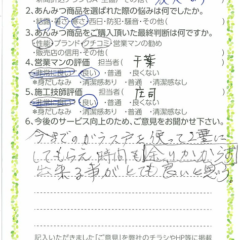 2.あんみつ商品を選ばれた際の悩みは何でしたか。
・結露・暑さ・寒さ・西日・防犯・騒音・その他(
3.あんみつ商品をご購入頂いた最終判断は何ですか。
・性能・ブランド・クチコミ・営業マンの勧め
・販売店の信用・その他(
4.営業マンの評価 担当者( 千葉
・非常に良い・良い・普通・良くない
*身だしなみ・清潔感あり・普通・清潔感なし
5.施工技師評価 担当者( 庄司
・非常に良い・良い・普通・良くない
*身だしなみ・清潔感あり・普通・清潔感なし
6.今後のサービス向上のため、ご意見をお聞かせ下さい。
今までのガラステと使って2重に
してもらえ、時間も余りかからず
出来る事がとても良いと思う。
記入いただきました『ご意見』を弊社のチラシやHP等に掲載